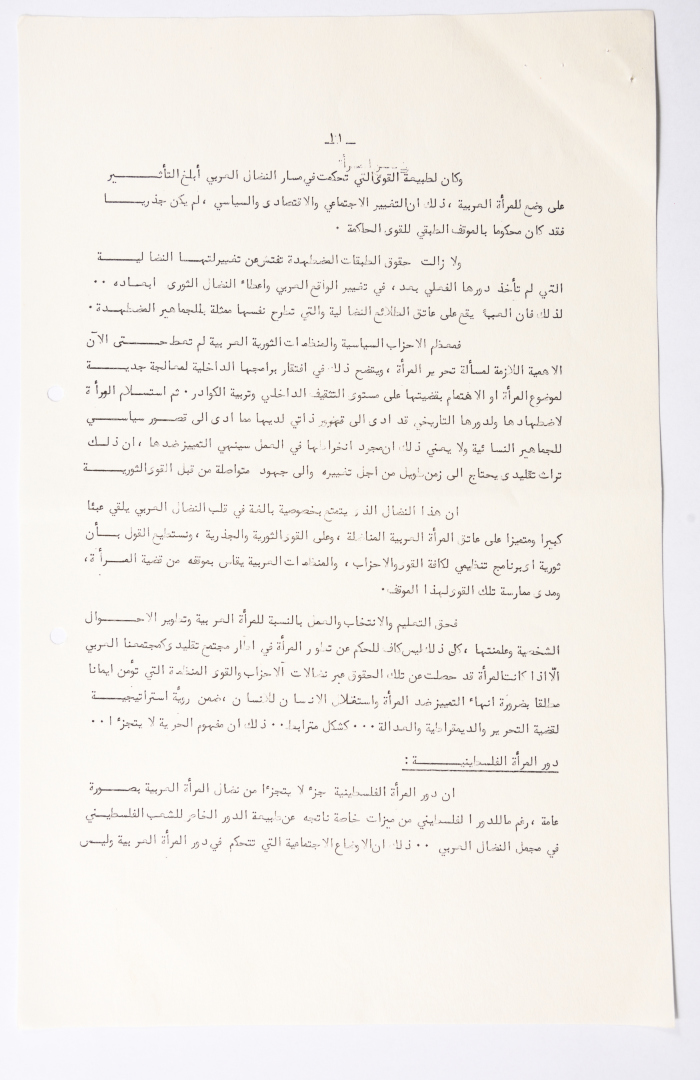 ـ ١١ ـ
وكان لطبيعة القوى التي تحكمت في مسار النضال العربي أبلغ التأثير
على وضع للمرأة العربية ، ذلك ان التغيير الاجتماعي والاقتصادى والسياسي ، لم يكن جذريا
فقد كان محكوما بالموقف الطبقي للقوى الحاكمة .
ولا زالت حقوق الطبقات المضطهدة تفتش عن تغييرلتها النضالية
التي لم تأخذ دورها الفعلي بعد ، في تغيير الواقع العربي واعطاء النضال الثورى ابعاده ..
لذلك فان العبء يقع على عاتق الطلائع النضالية والتي تطرح نفسها ممثلة بالجماهير المضطهدة .
فمعظم الاحزاب السياسية والمنظمات الثورية العربية لم تعط حتى الآن
الاهمية اللازمة لمسألة تحرير المرأة ، ويتضح ذلك في افتقار برامجها الداخلية لمعالجة جدية
لموضوع المرأة او الاهتمام بقضيتها على مستوى التثقيف الداخلي وتربية الكوادر . ثم استسلام المرأة
لاضطهادها ولدورها التاريخي قد ادى الى قصور ذاتي لديها مما ادى الى قصور سياسي
للجماهير النسائية ولا يعني ذلك ان مجرد انخراطها في العمل سينهي التمييز ضدها ، ان ذلك
تراث تقليدى يحتاج الى زمن طويل من اجل تغييره والى جهود متواصلة من قبل القوى الثورية
ان هذا النضال الذى يتمتع بخصوصية بالغة في قلب النضال العربي يلقي عبئا
كبيرا ومتميزا على عاتق المرأة العربية المناضلة ، وعلى القوى الثورية والجذرية ، ونستطيع القول بأن
ثورية أى برنامج تنظيمي لكافة القوى والاحزاب ، والمنظمات العربية يقاس بموقفه من قضية المرأة ،
ومدى ممارسة تلك القوى لهذا الموقف .
فحق التعليم والانتخاب والعمل بالنسبة للمرأة العربية وتطوير الاحوال
الشخصية وعلمنتها ، كل ذلك ليس كاف للحكم عن تطور المرأة في اطار مجتمع تقليدى كمجتمعنا العربي
الّا اذا كانت المرأة قد حصلت عن تلك الحقوق عبر نضالات الاحزاب والقوى المنظمة التي تؤمن ايمانا
مطلقا بضرورة انهاء التمييز ضد المرأة واستغلال الانسان للانسان ، ضمن رؤية استراتيجية
لقضية التحرير والديمقراطية والعدالة ... كشكل مترابط .. ذلك ان مفهوم الحرية لا يتجزء ا ..
دور المرأة الفلسطينية :
ان دور المرأة الفلسطينية جزء لا يتجزءا من نضال المرأة العربية بصورة
عامة ، رغم ماللدور الفلسطيني من ميزات خاصة ناتجه عن طبيعة الدور الخاص للشعب الفلسطيني
في مجمل النضال العربي .. ذلك ان الاوضاع الاجتماعية التي تتحكم في دور المرأة العربية وليس